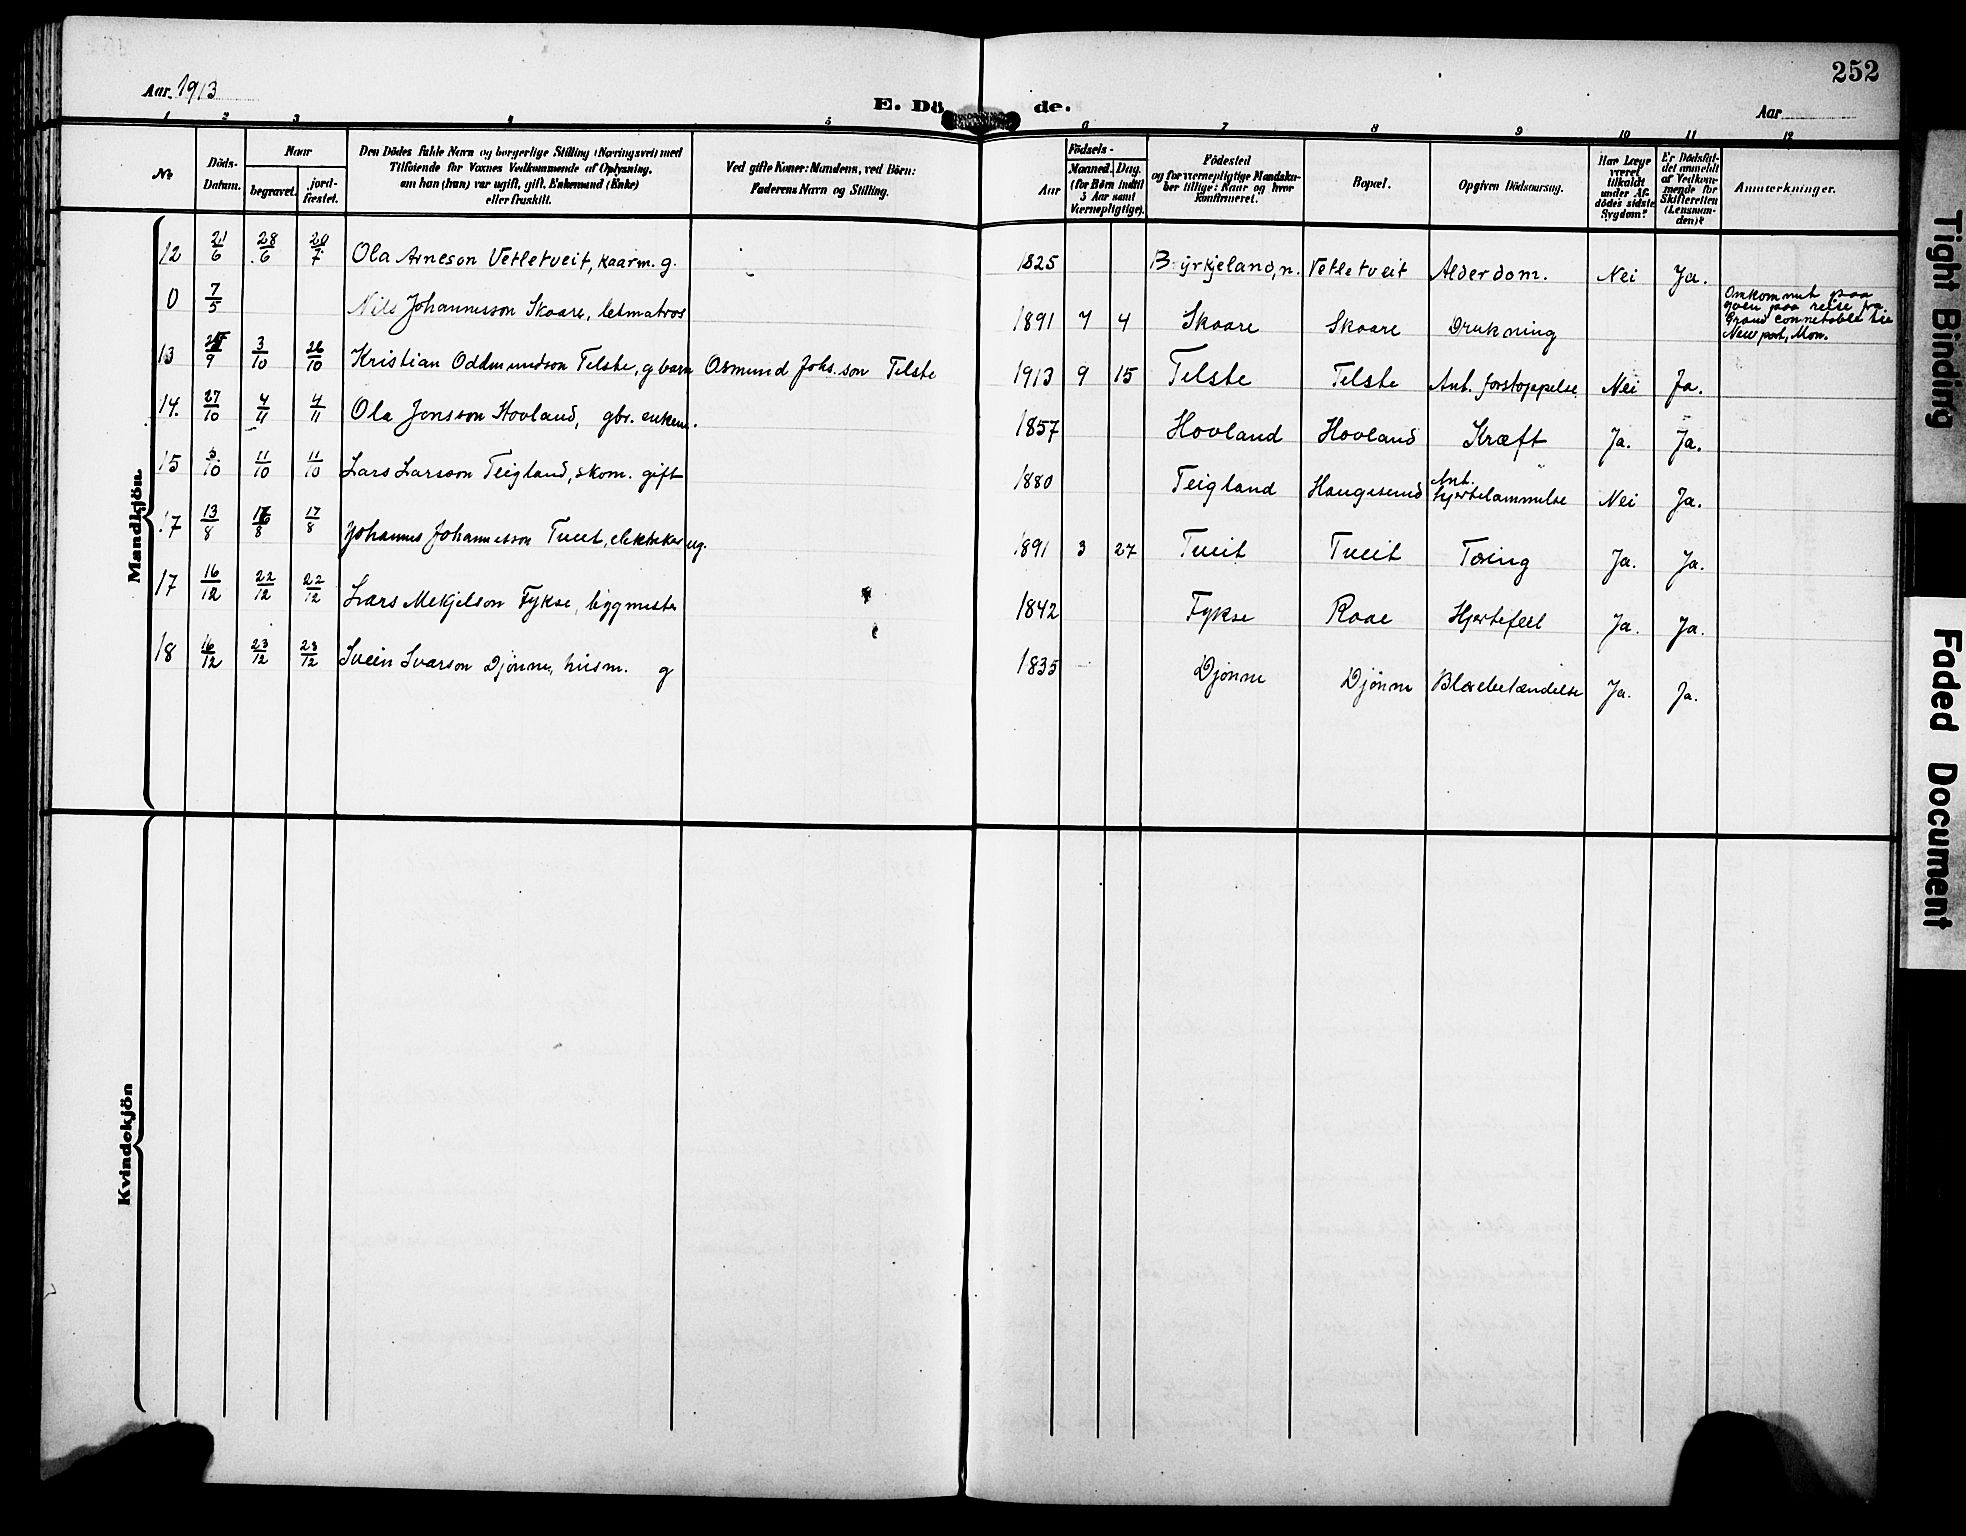 252
Aar. 1913
E. Dö de.
Aar
1 2 3 4 5 6 7 8 9 10 11 12
No
Döds-
Datum.
Naar
begravet.
jord-
fæstet.
Den Dödes fulde Navn og borgerlige Stilling (Næringsvei) med
Tilføiende for Voxnes Vedkommende af Oplysning,
om han (hun) var ugift, gift, Enkemand (Enke)
eller fraskilt.
Ved gifte Koner: Mandens, ved Börn:
Faderens Navn og Stilling.
Födsels-
Aar
Maaned. Dag.
(for Børn indtil
5 Aar samt
Værnepligtige).
Födested
og for værnepligtige Mandska-
ber tillige: Naar og hvor
konfirmeret.
Bopæl.
Opgiven Dödsaarsag.
Har Læge
været
tilkaldt
under Af-
dödes sidste
Sygdom?
Er Dödsfal-
det anmeldt
af Vedkom-
mende for
Skifteretten
(Lensman-
den)?
Anmærkninger.
Mandkjön
12 21/6 28/6 20/7 Ola Arneson Vetletveit, kaarm. g. 1825 Byrkjeland, n. Vetletveit Alderdom. Nei Ja.
0 7/5 Nils Johannesson Skaare, letmatros 1891 7 4 Skaare Skaare Drukning
Omkommet paa
reise fra
Grand connetable til
Newport, Mon.
13 /9 3/10 26/10 Kristian Oddmundson Telste, g barn Osmund Johs. son Telste 1913 9 15 Telste Telste Ant. forstoppelse Nei Ja.
14. 27/10 4/11 4/11 Ola Jonsson Hovland, gbr. enkem. 1857 Hovland Hovland Kræft Ja. Ja.
15 5/10 11/10 11/10 Lars Larsson Teigland, skom. gift 1880 Teigland Haugesund Ant. hjertelammelse Nei Ja.
17 13/8 17/8 17/8 Johannes Johannesson Tveit, elektriker ug. 1891 3 27 Tveit Tveit Tæring Ja. Ja.
17 16/12 22/12 22/12 Lars Mekjelson Fykse, byggmester 1842 Fykse Raae Hjertefeil Ja. Ja.
18 16/12 23/12 23/12 Svein Ivarson Djønne, husm. g 1835 Djønne Djønne Blærebetændelse Ja. Ja.
Kvindekjön
Tight Binding
Faded Document